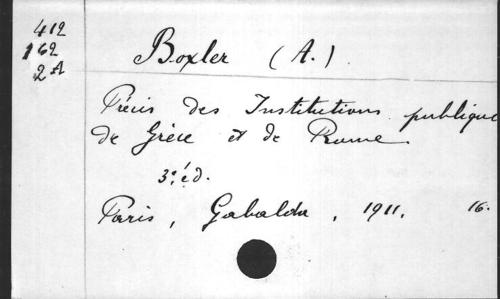 412
162
2A
Boxler (A.)
Précis des Institutions publique
de Grèce et de Rome.
3e éd.
Paris, Gabalda, 1911. 16.